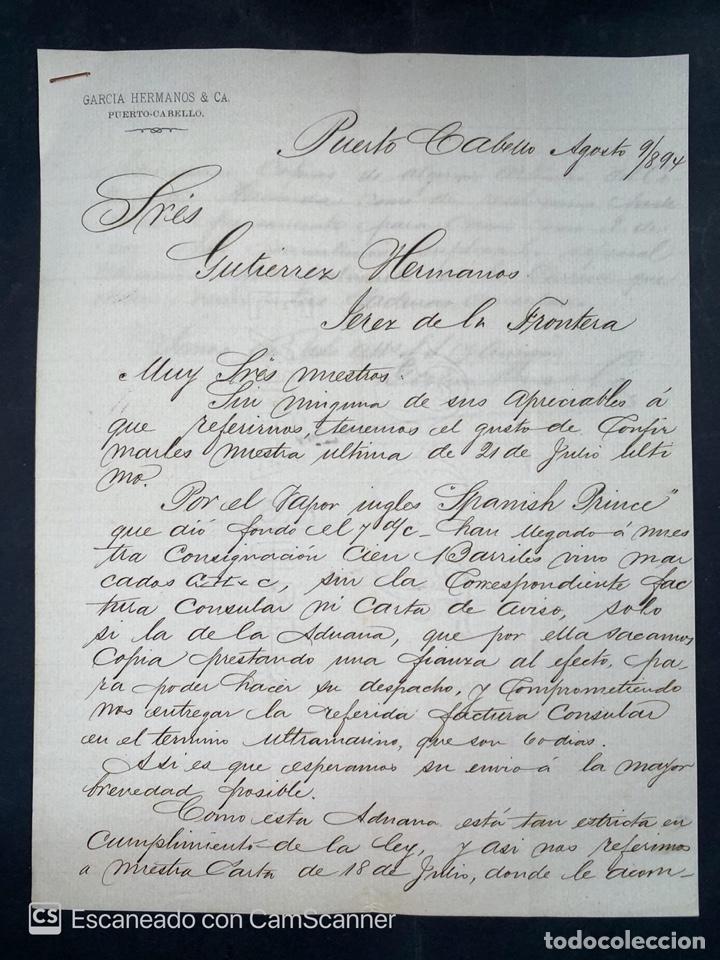 GARCIA HERMANOS & CA.
PUERTO-CABELLO.
Puerto Cabello Agosto 9/894
Srés
Gutierrez Hermanos.
Jerez de la Frontera
Muy Srés nuestros:
Sin ninguna de sus apreciables á
que referirnos, tenemos el gusto de Confir
marles nuestra ultima de 21 de Julio ulti
mo.
Por el Vapor ingles "Spanish Prince"
que dió fondo el 7 d/c han llegado á nues
tra Consignación Cien Barriles vino mar
cados, sin la Correspondiente fac
tura Consular ni Carta de aviso, solo
si la de la Aduana, que por ella sacamos
Copia prestando una fianza al efecto, pa-
ra poder hacer su despacho, y Comprometiendo
nos entregar la referida factura Consular
en el termino ultramarino, que son 60 dias.
Asi es que esperamos su envio á la mayor
brevedad posible.
Como esta Aduana está tan estricta en
Cumplimiento de la ley, y asi nos referimos
a nuestra Carta de 18 de Julio, donde le acom-
CS Escaneado con CamScanner
todocoleccion